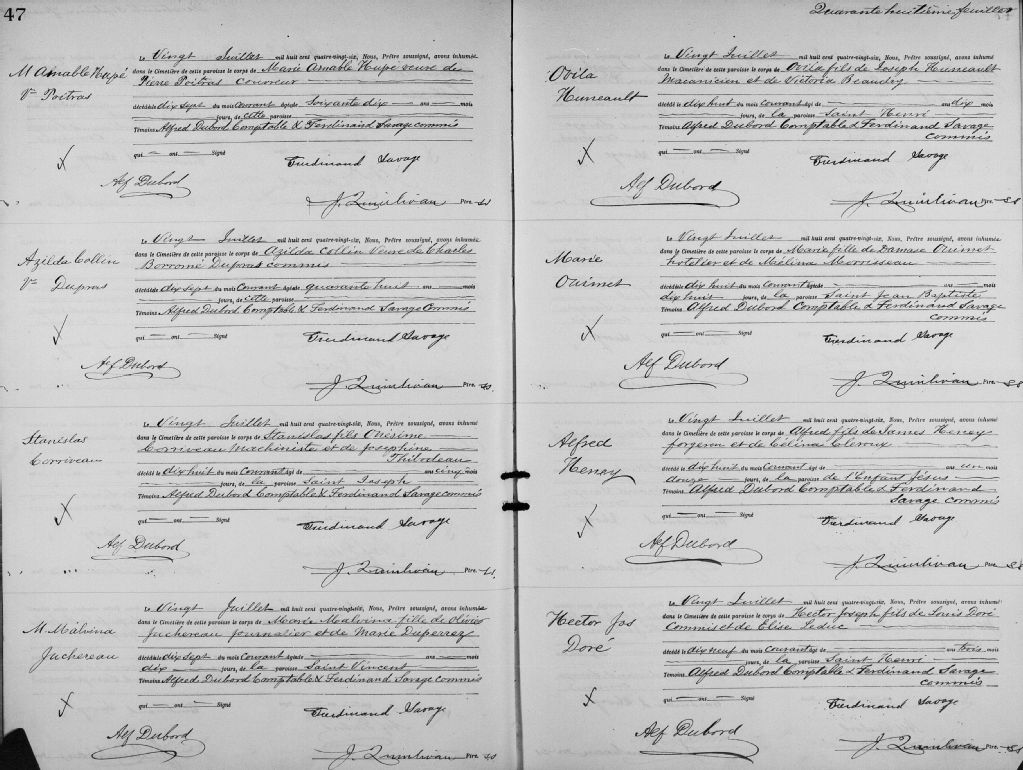 47
M Amable Hupé
Vve Poitras
Le Vingt Juillet mil huit cent quatre-vingt-six, Nous, Prêtre soussigné, avons inhumé
dans le Cimetière de cette paroisse le corps de Marie Amable Hupé veuve de
Pierre Poitras couvreur
décédée dix sept du mois courant âgée de Soixante dix — ans — mois
— jours, de cette paroisse
Témoins Alfred Dubord Comptable & Ferdinand Savage commis
qui — ont — Signé
Ferdinand Savage
Alf Dubord
J. Quinlivan Ptre.
Azilda Collin
Vve Dupras
Le Vingt Juillet mil huit cent quatre-vingt-six, Nous, Prêtre soussigné, avons inhumée
dans le Cimetière de cette paroisse le corps de Azilda Collin Veuve de Charles
Borromé Dupras commis
décédée dix sept du mois courant âgée de quarante huit — ans — mois
— jours, de cette paroisse
Témoins Alfred Dubord Comptable & Ferdinand Savage Commis
qui — ont — Signé
Ferdinand Savage
Alf Dubord
J. Quinlivan Ptre.
Stanislas
Corriveau
Le Vingt Juillet mil huit cent quatre-vingt-six, Nous, Prêtre soussigné, avons inhumé
dans le Cimetière de cette paroisse le corps de Stanislas fils Onésime
Corriveau Machiniste et de Josephine
Thilodeau
décédé le dix huit du mois Courant âgé de — ans cinq mois
— jours, de la paroisse Saint Joseph
Témoins Alfred Dubord Comptable & Ferdinand Savage commis
qui — ont — Signé
Ferdinand Savage
Alf Dubord
J. Quinlivan Ptre.
M. Malvina
Juchereau
Le Vingt Juillet mil huit cent quatre-vingt-six, Nous, Prêtre soussigné, avons inhumée
dans le Cimetière de cette paroisse le corps de Marie Malvina fille de Olivier
Juchereau journalier et de Marie Duperrez
décédée dix sept du mois Courant âgée de — ans — mois
dix — jours, de la paroisse Saint Vincent
Témoins Alfred Dubord Comptable & Ferdinand Savage commis
qui — ont — Signé
Ferdinand Savage
Alf Dubord
J. Quinlivan Ptre.
Quarante huitième feuillet
Ovila
Huneault
Le Vingt Juillet mil huit cent quatre-vingt-six, Nous, Prêtre soussigné, avons inhumé
dans le Cimetière de cette paroisse le corps de Ovila fils de Joseph Huneault
Mécanicien et de Victoria Beaudry
décédé le dix huit du mois courant âgé de — ans dix — mois
— jours, de la paroisse Saint Henri
Témoins Alfred Dubord Comptable & Ferdinand Savage
commis
qui — ont — Signé
Ferdinand Savage
Alf Dubord
J. Quinlivan Ptre.
Marie
Ouimet
Le Vingt Juillet mil huit cent quatre-vingt-six, Nous, Prêtre soussigné, avons inhumée
dans le Cimetière de cette paroisse le corps de Marie fille de Damase Ouimet
hotelier et de Mélina Morrisseau
décédée dix huit du mois courant âgée de — ans — mois
dix huit — jours, de la paroisse Saint Jean Baptiste
Témoins Alfred Dubord Comptable & Ferdinand Savage
commis
qui — ont — Signé
Ferdinand Savage
Alf Dubord
J. Quinlivan Ptre.
Alfred
Heney
Le Vingt Juillet mil huit cent quatre-vingt-six, Nous, Prêtre soussigné, avons inhumé
dans le Cimetière de cette paroisse le corps de Alfred fils de James Heney
forgeron et de Célina Cleroux
décédé le dix huit du mois courant âgé de — ans un mois
douze — jours, de la paroisse de l'Enfant Jésus
Témoins Alfred Dubord Comptable & Ferdinand
Savage commis
qui — ont — Signé
Ferdinand Savage
Alf Dubord
J. Quinlivan Ptre.
Hector Jos
Doré
Le Vingt Juillet mil huit cent quatre-vingt-six, Nous, Prêtre soussigné, avons inhumé
dans le Cimetière de cette paroisse le corps de Hector Joseph fils de Louis Doré
Commis et de Elise Leduc
décédé le dix neuf du mois Courant âgé de — ans trois mois
— jours, de la paroisse Saint Henri
Témoins Alfred Dubord Comptable & Ferdinand Savage
commis
qui — ont — Signé
Ferdinand Savage
Alf Dubord
J. Quinlivan Ptre.